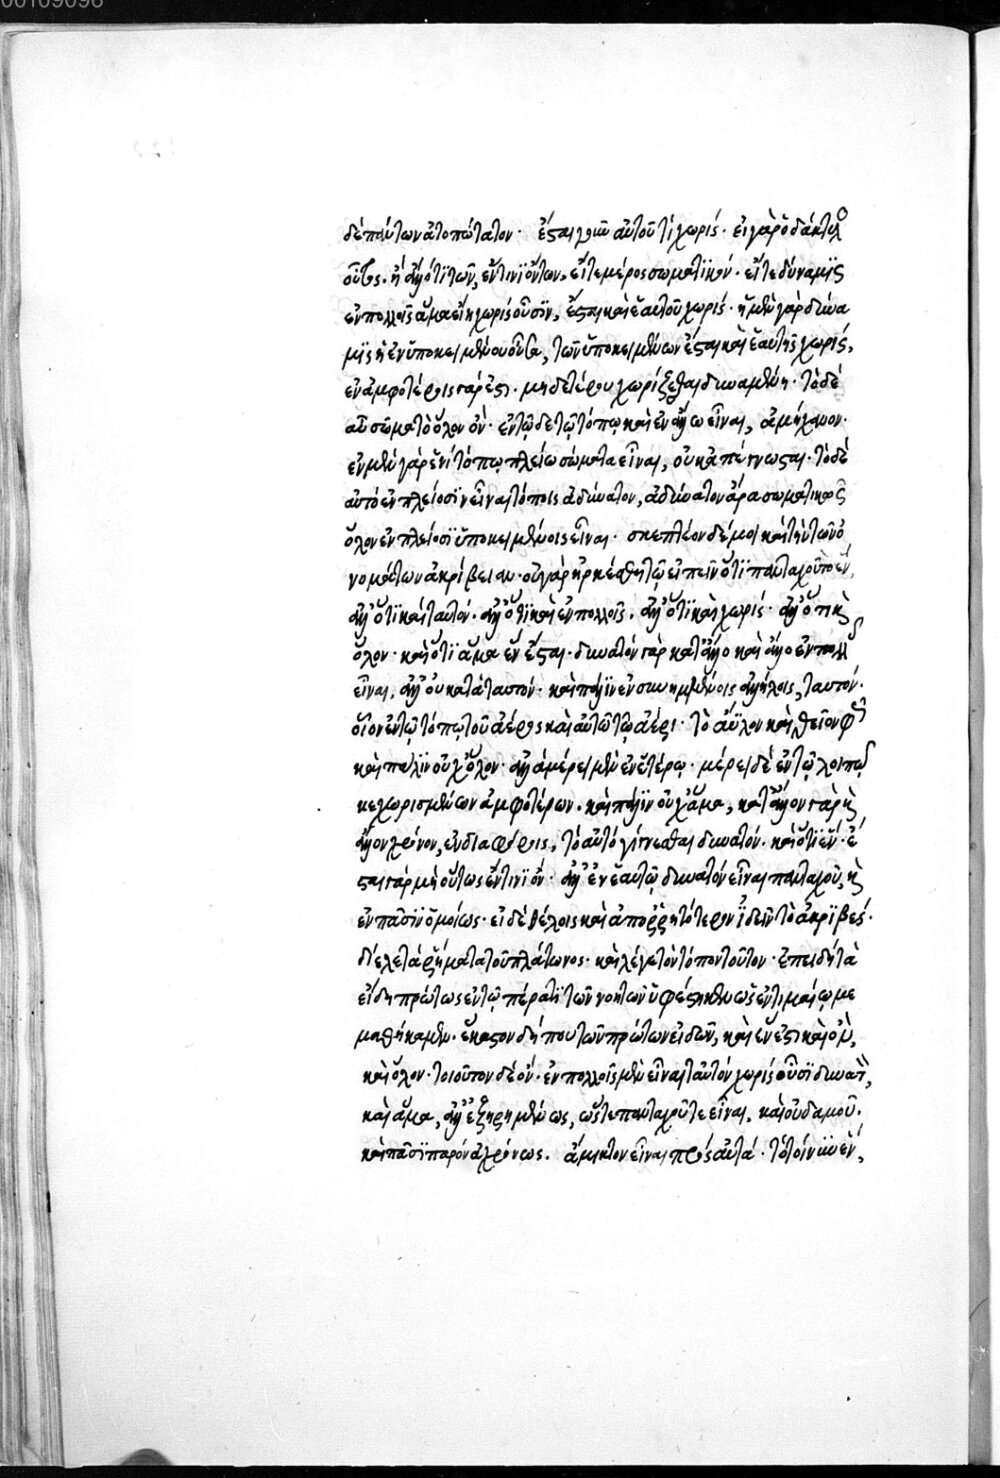 00109098
δὲ πάντων ἀτοπώτατον· ἔσται γοῦν αὐτοῦ τι χωρίς· εἰ γὰρ ὁ δάκτυλος
οὗτος· ἢ ἄλλό τι τῶν, ἔν τινι ὄντων, εἴτε μέρος σωματικόν· εἴτε δύναμις
ἐν πολλοῖς ἅμα εἴη χωρὶς οὖσιν, ἔσται καὶ ἑαυτοῦ χωρίς· ἡ μὲν γὰρ δύνα
μις ἡ ἐν ὑποκειμένου οὖσα, τῶν ὑποκειμένων ἔσται καὶ ἑαυτῆς χωρίς,
ἐν ἀμφοτέροις γάρ ἐστι· μηδετέρου χωρίζεσθαι δυναμένη· τὸ δὲ
αὖ σῶμα τὸ ὅλον ὂν· ἐν τῷδε τῷ τόπῳ καὶ ἐν ἄλλῳ εἶναι, ἀμήχανον·
ἐν μὲν γὰρ ἑνὶ τόπῳ πλείω σώματα εἶναι, οὐκ ἀπέγνωσται· τὸ δὲ
αὐτὸ ἐν πλείοσιν εἶναι τόποις ἀδύνατον, ἀδύνατον ἄρα σωματικῶς
ὅλον ἐν πλείοσι ὑποκειμένοις εἶναι· σκεπτέον δέ μοι καὶ τὴν τῶν ὀ
νομάτων ἀκρίβειαν· οὐ γὰρ ἠρκέσθη τῷ εἰπεῖν ὅτι πανταχοῦ τὸ ἕν,
ἀλλ' ὅτι καὶ ταυτόν· ἀλλ' ὅτι καὶ ἐν πολλοῖς. ἀλλ' ὅτι καὶ χωρίς· ἀλλ' ὅτι καὶ
ὅλον· καὶ ὅτι ἅμα ἓν ἔσται· δυνατὸν γὰρ κατ' ἄλλο καὶ ἄλλο ἐν πολλοῖς
εἶναι, ἀλλ' οὐ κατὰ ταυτόν· καὶ πάλιν ἐν συνημμένοις ἀλλήλοις, ταυτόν·
οἷον ἐν τῷ τόπῳ τοῦ ἀέρος καὶ αὐτῷ τῷ ἀέρι· τὸ ἄϋλον καὶ θεῖον φῶς
καὶ πάλιν οὐχ ὅλον· ἀλλὰ μέρει μὲν ἐν ἑτέρῳ· μέρει δὲ ἐν τῷ λοιπῷ
κεχωρισμένων ἀμφοτέρων· καὶ πάλιν οὐχ ἅμα, κατ' ἄλλον γὰρ καὶ
ἄλλον χρόνον, ἐν διαφόροις, τὸ αὐτὸ γίνεσθαι δυνατόν· καὶ ὅτι ἓν· ἔ
σται γὰρ μὴ οὕτως ἔν τινι ὄν· ἀλλ' ἐν ἑαυτῷ δυνατὸν εἶναι πανταχοῦ, καὶ
ἐν πᾶσιν ὁμοίως· εἰ δὲ θέλοις καὶ ἀπορρητότερον ἰδεῖν τὸ ἀκριβές·
δίελε τὰ ῥήματα τοῦ πλάτωνος· καὶ λέγε τὸν τόπον τοῦτον· ἐπειδὴ τὰ
εἴδη πρώτως ἐν τῷ πέρατι τῶν νοητῶν ὑφέστηκεν ὡς ἐν τιμαίῳ με
μαθήκαμεν· ἕκαστον δήπου τῶν πρώτων εἰδῶν, καὶ ἕν ἐστι καὶ ὄν,
καὶ ὅλον· τοιοῦτον δὲ ὂν· ἐν πολλοῖς μὲν εἶναι ταὐτὸν χωρὶς οὖσι δυνατόν,
καὶ ἅμα, ἀλλ' ἐξῃρημένως, ὥστε πανταχοῦ τε εἶναι, καὶ οὐδαμοῦ·
καὶ πᾶσι παρὸν ἀχρόνως. ἄμικτον εἶναι πρὸς αὐτά· τὸ τοίνυν ἓν,